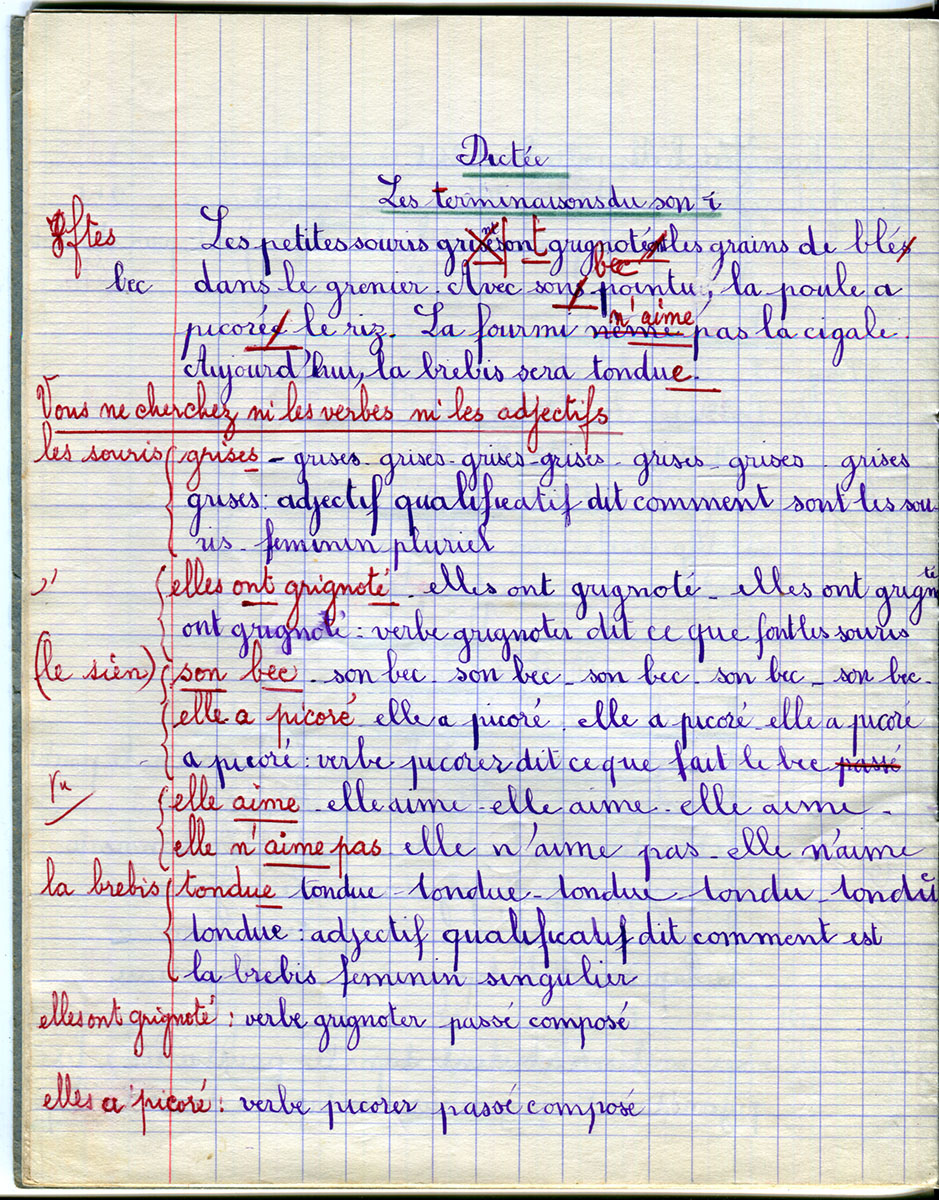 Dictée
Les terminaisons du son i
8ftes Les petites souris grises ont grignoté les grains de blé
bec dans le grenier. Avec son bec pointu, la poule a
picoré le riz. La fourmi n'aime pas la cigale.
Aujourd'hui, la brebis sera tondue.
Vous ne cherchez ni les verbes ni les adjectifs
les souris grises - grises - grises - grises - grises - grises - grises - grises
grises : adjectif qualificatif dit comment sont les sou-
ris - feminin pluriel
elles ont grignoté - elles ont grignoté - elles ont grignoté
ont grignoté : verbe grignoter dit ce que font les souris
(le sien) son bec - son bec - son bec - son bec - son bec - son bec -
elle a picoré elle a picoré - elle a picoré - elle a picoré
a picoré : verbe picorer dit ce que fait le bec passé
Vu elle aime - elle aime - elle aime - elle aime -
elle n'aime pas elle n'aime pas - elle n'aime
la brebis tondue tondue - tondue - tondue - tondu - tondue
tondue : adjectif qualificatif dit comment est
la brebis feminin singulier
elles ont grignoté : verbe grignoter passé composé
elles a picoré : verbe picorer passé composé